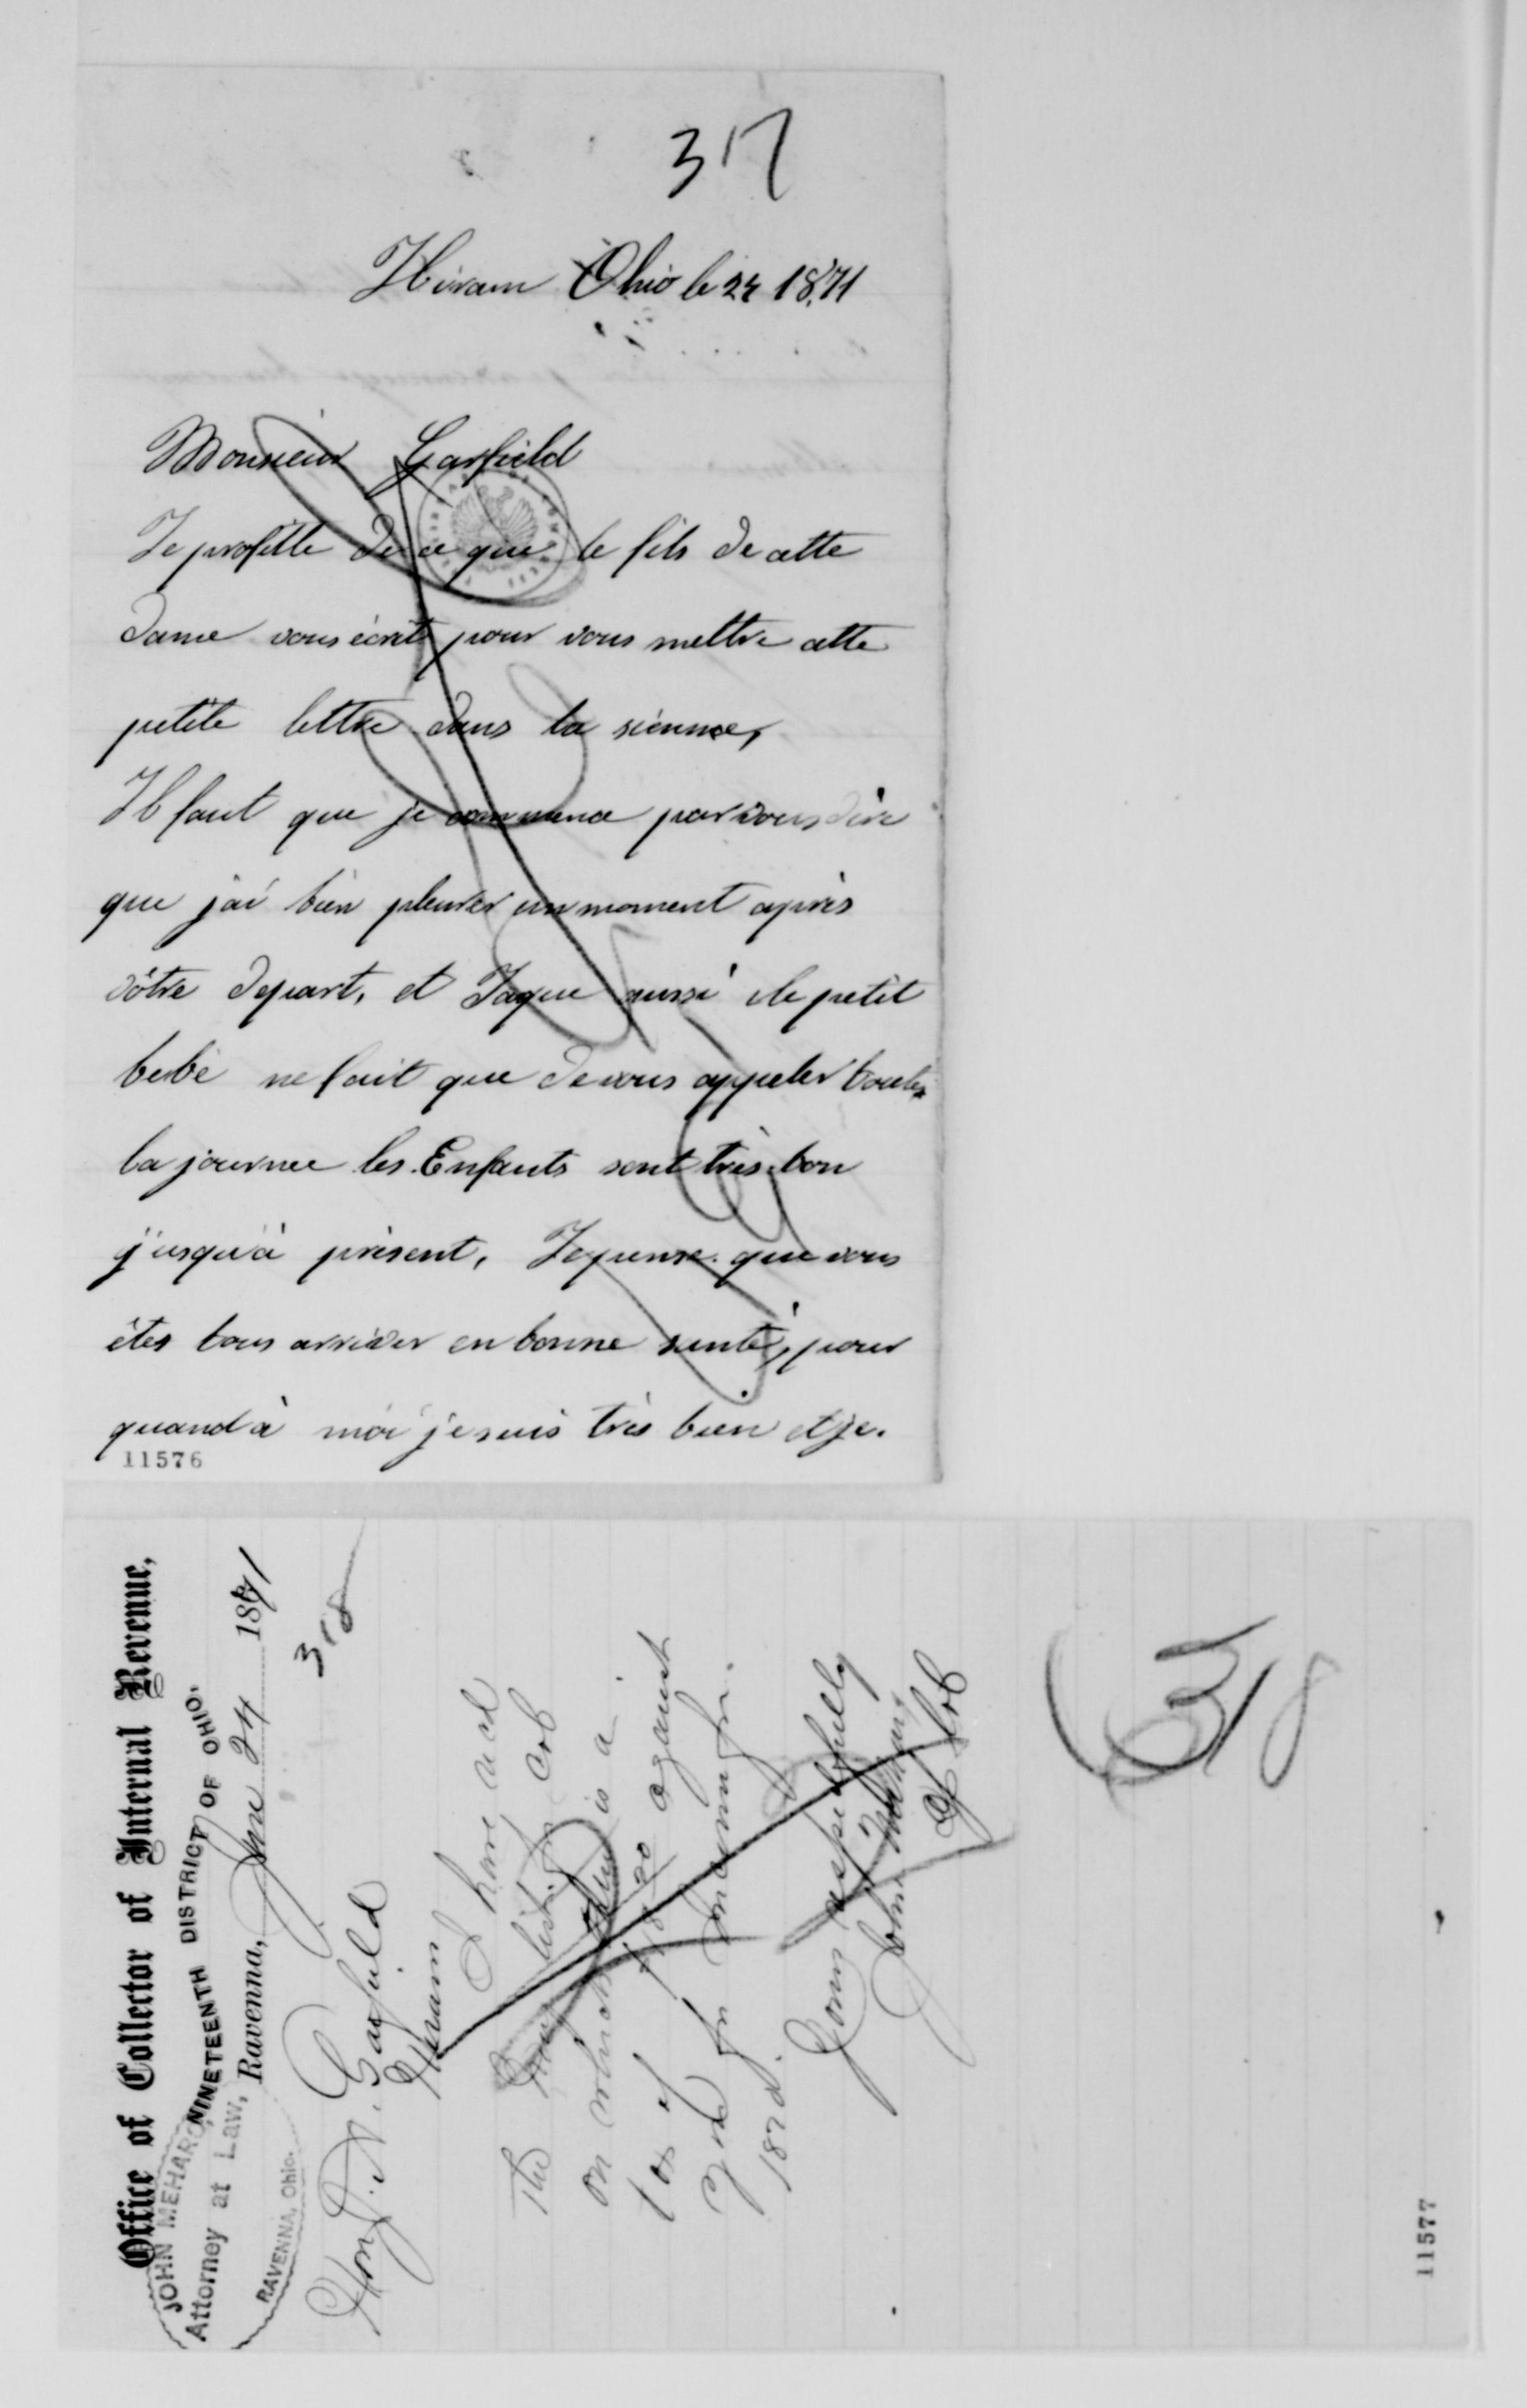 317
Hiram Ohio le 24 1871
Monsieur Garfield
Je profitte de ce que le fils de cette
dame vous écrit pour vous mettre cette
petite lettre dans la sienne,
Il faut que je commence par vous dire
que jai bien pleurer un moment après
vôtre depart, et Jaque aussi le petit
bebé ne fait que de vous appeler toutes
la journee les Enfants sont très bon
j'usqu'à présent, Je pense que vous
êtes tous arriver en bonne santé, pour
quand à moi je suis très bien et je
11576
Office of Collector of Internal Revenue,
NINETEENTH DISTRICT OF OHIO,
JOHN MEHARD
Attorney at Law,
RAVENNA, Ohio.
Ravenna, June 24 1871
318
Hon J. A. Garfield
Hiram
I have recd
The list from Col
on which there is a
tax of $18.20 against
you for Income for
1870.
Yours respectfully
John Mehard
D Col
318
11577